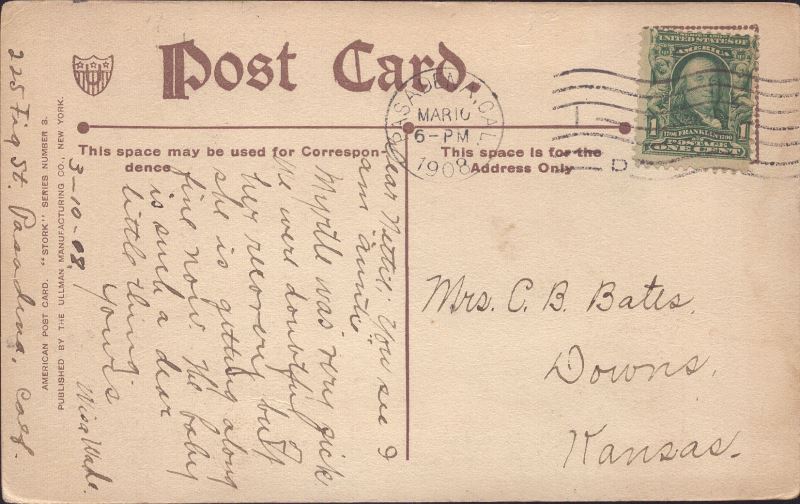 Post Card.
This space may be used for Correspon-
dence
This space is for the
Address Only
PASADENA, CAL.
MAR 10
6-PM
1908
D
UNITED STATES OF
AMERICA
FRANKLIN
POSTAGE
1 ONE CENT 1
Mrs. C. B. Bates,
Downs,
Kansas.
Dear Nettie: You see I
am "auntie".
Myrtle was very sick
We were doubtful
her recovery but
she is getting along
fine now. The baby
is such a dear
little thing.
Yours
Wade.
3-10-08.
225 Fig St. Pasadena, Calf.
AMERICAN POST CARD. "STORK" SERIES NUMBER 3.
PUBLISHED BY THE ULLMAN MANUFACTURING CO., NEW YORK.